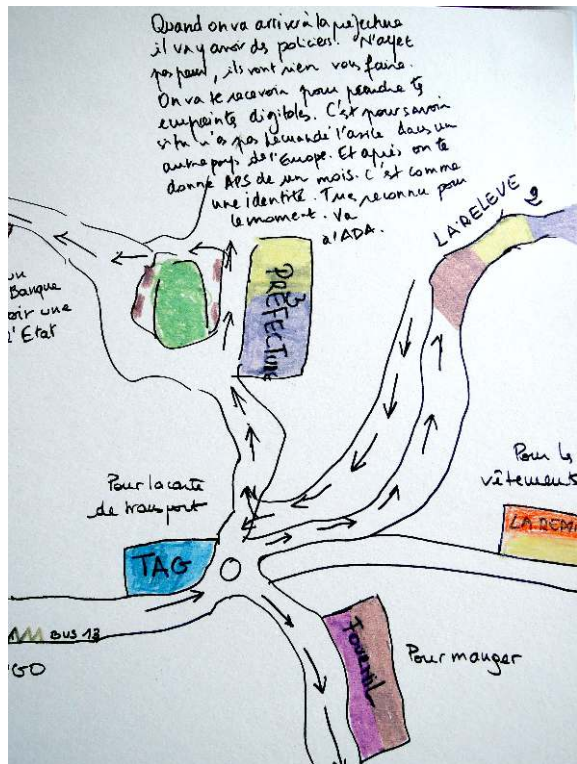 Quand on va arriver à la préfecture
il va y avoir des policiers. N'ayet
pas peur, ils vont rien vous faire.
On va te recevoir pour prendre tes
empreintes digitales. C'est pour savoir
si tu n'as pas demandé l'asile dans un
autre pays de l'Europe. Et après on te
donne APS de un mois. C'est comme
une identité. Tu es reconnu pour
le moment. Va
à l'ADA.
LA RELEVE 2
un
Banque
oir une
l'Etat
3
PREFECTURE
Pour la carte
de transport
Pour les
vêtements
TAG
LA REMI
BUS 13
'GO
Pour manger